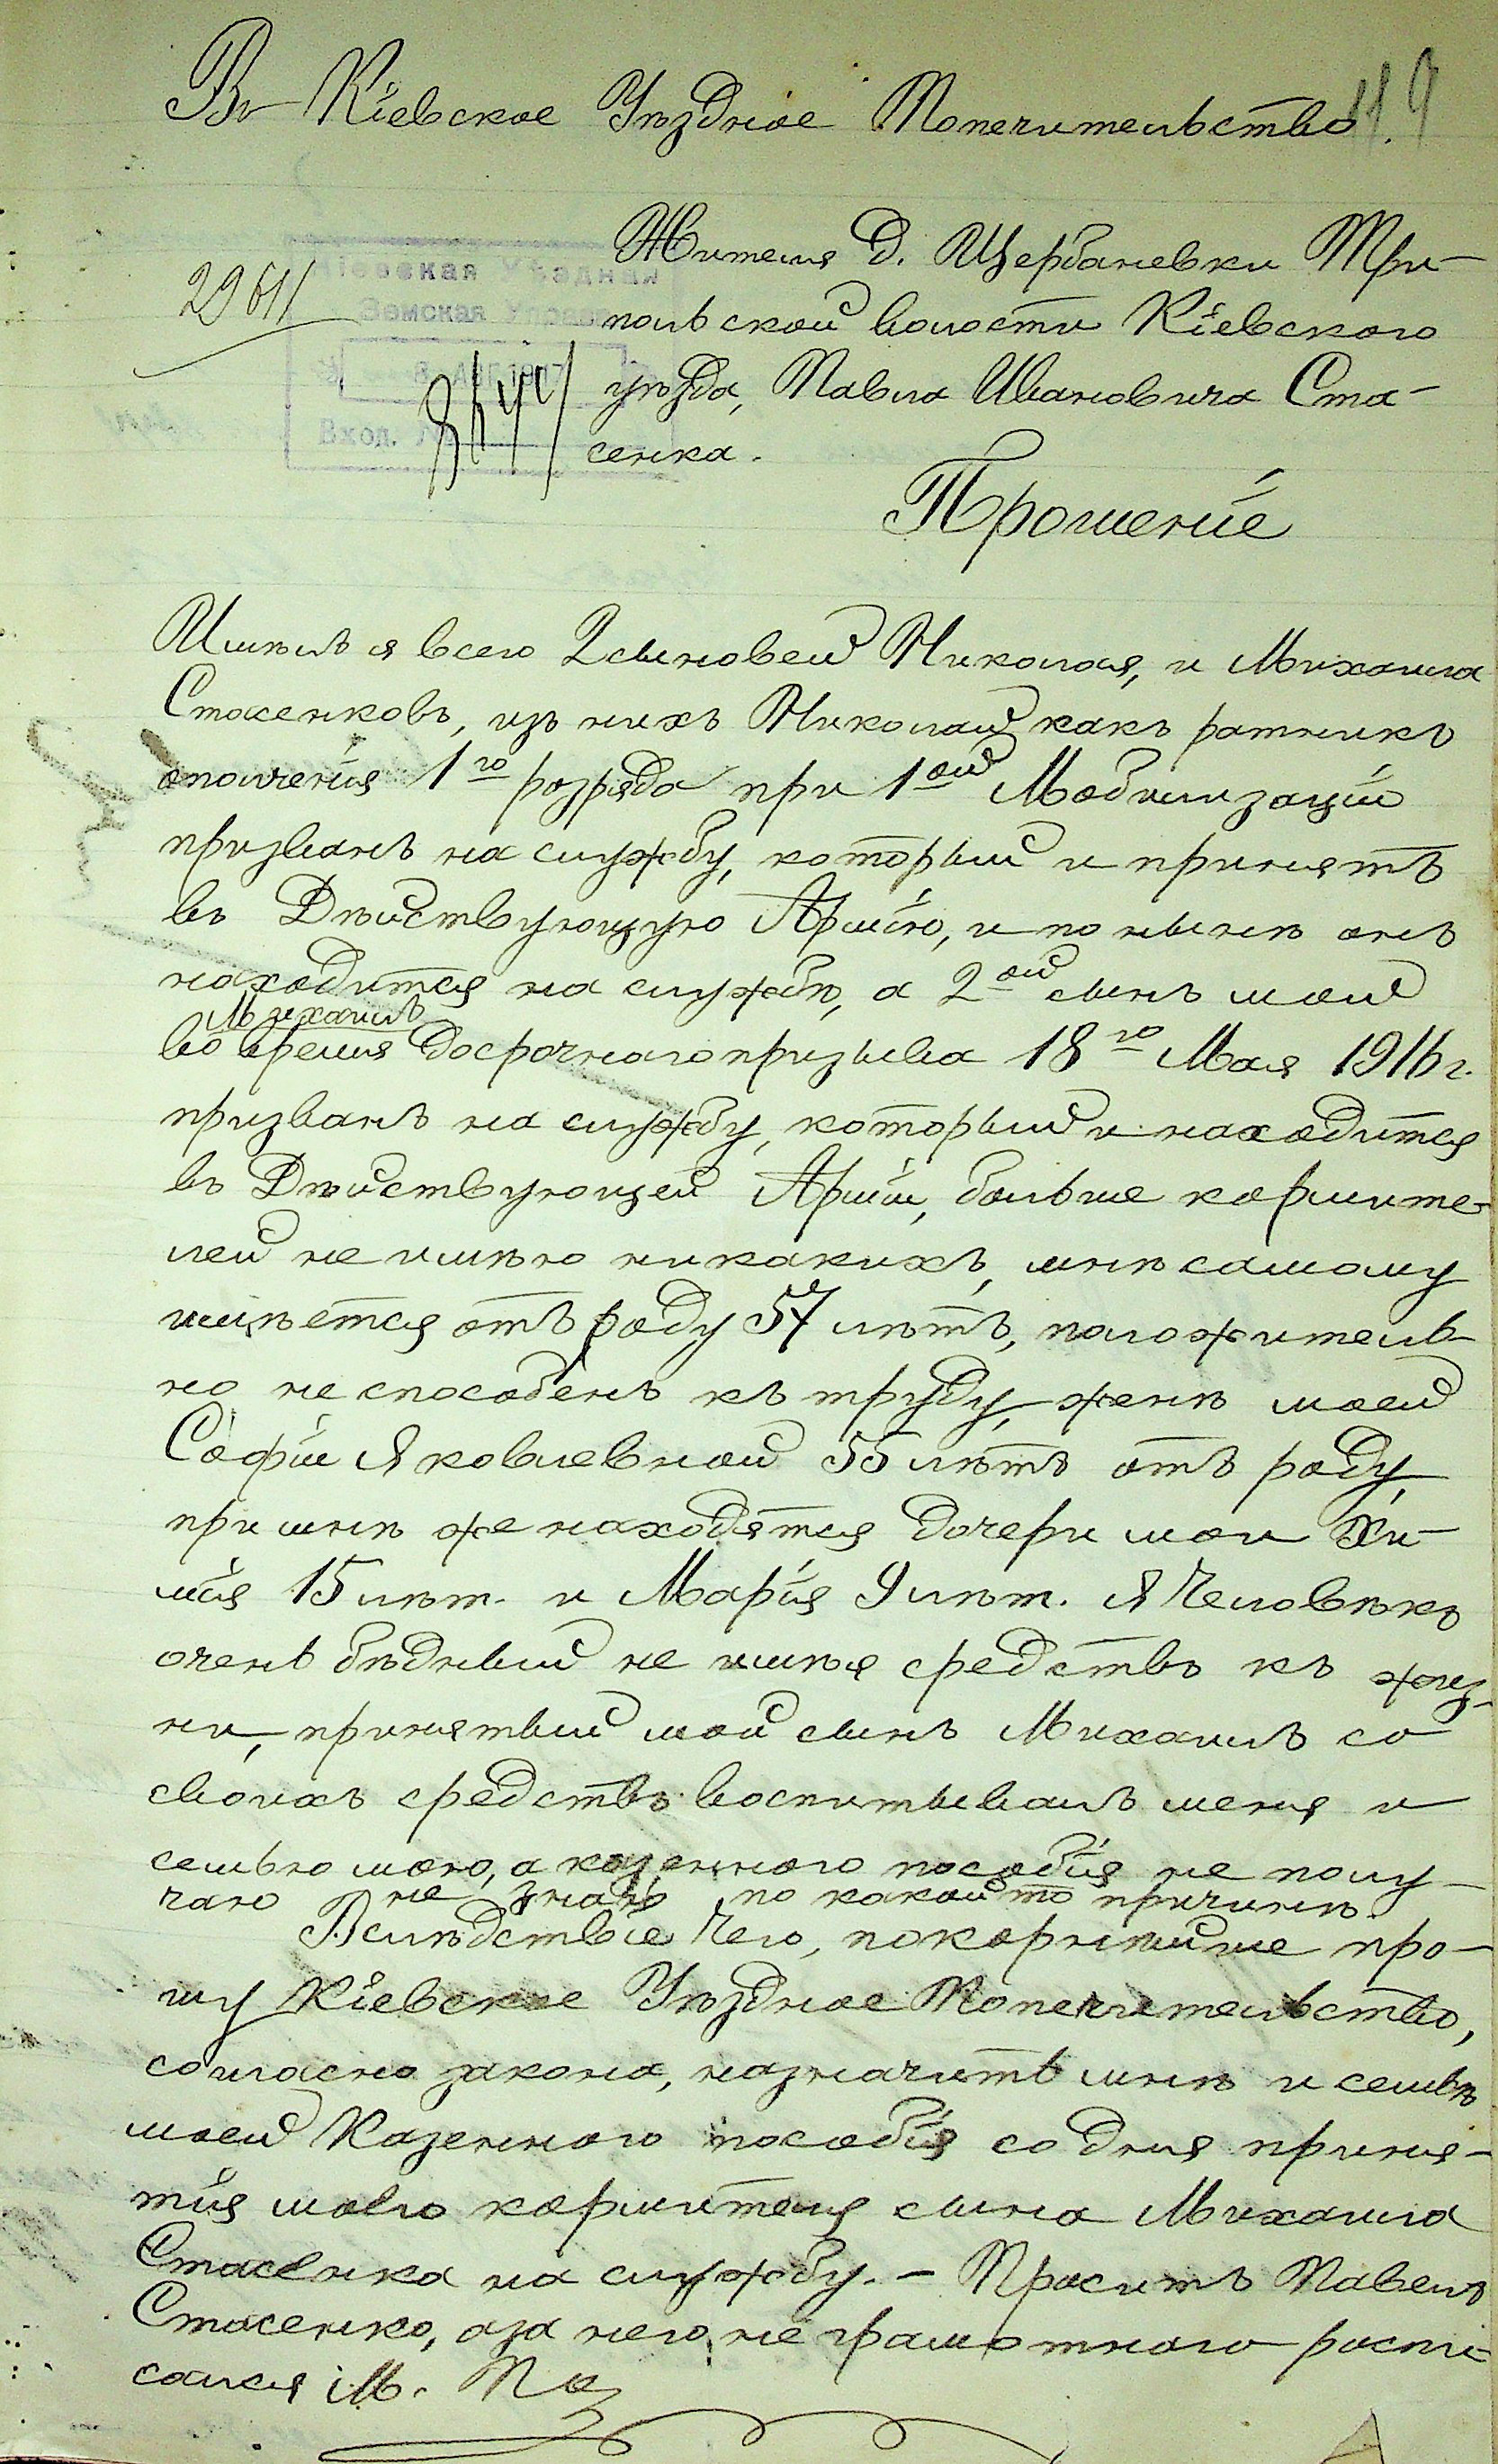 Въ Кіевское Уѣздное Попечительство.
119
Кіевская Уѣздная
Земская Управа
8 АВГ 1917
Вход. №
29611
Жителя д. Щербаневки Три-
польской волости Кіевского
уѣзда, Павла Ивановича Ста-
сенка.
Прошеніе
Имѣлъ я всего 2 сыновей Николая, и Михаила
Стасенковъ, изъ нихъ Николай какъ ратникъ
ополченія 1го розряда при 1ой Мобилизаціи
призванъ на службу, который и принятъ
въ Дѣйствующую Армію, и по нынѣ онъ
находится на службѣ, а 2ой сынъ мой
Михаилъ
во время досрочного призыва 18го Мая 1916 г.
призванъ на службу, который и находится
въ Дѣйствующей Арміи, больше кормите-
лей не имѣю никакихъ, мнѣ самому
имѣется отъ роду 57 лѣтъ, положитель-
но не способенъ къ труду, женѣ моей
Софіи Яковлевной 55 лѣтъ отъ роду,
при мнѣ же находятся дочери мои Хи-
мія 15 лѣт. и Марія 9 лѣт. Я Человѣкъ
очень бѣдный не имѣя средствъ къ жиз-
ни, принятый мой сынъ Михаилъ со
своихъ средствъ воспитывалъ меня и
семью мою, а казенного пособія не полу-
чаю не знаю по какой то причинѣ.
Вслѣдствіе Чего, покорнѣйше про-
шу Кіевское Уѣздное Попечительство,
согласно закона, назначить мнѣ и семьѣ
моей Казенного пособія со дня приня-
тія моего кормителя сына Михаила
Стасенка на службу. - Проситъ Павелъ
Стасенко, а за него не грамотного роспи-
сался М.